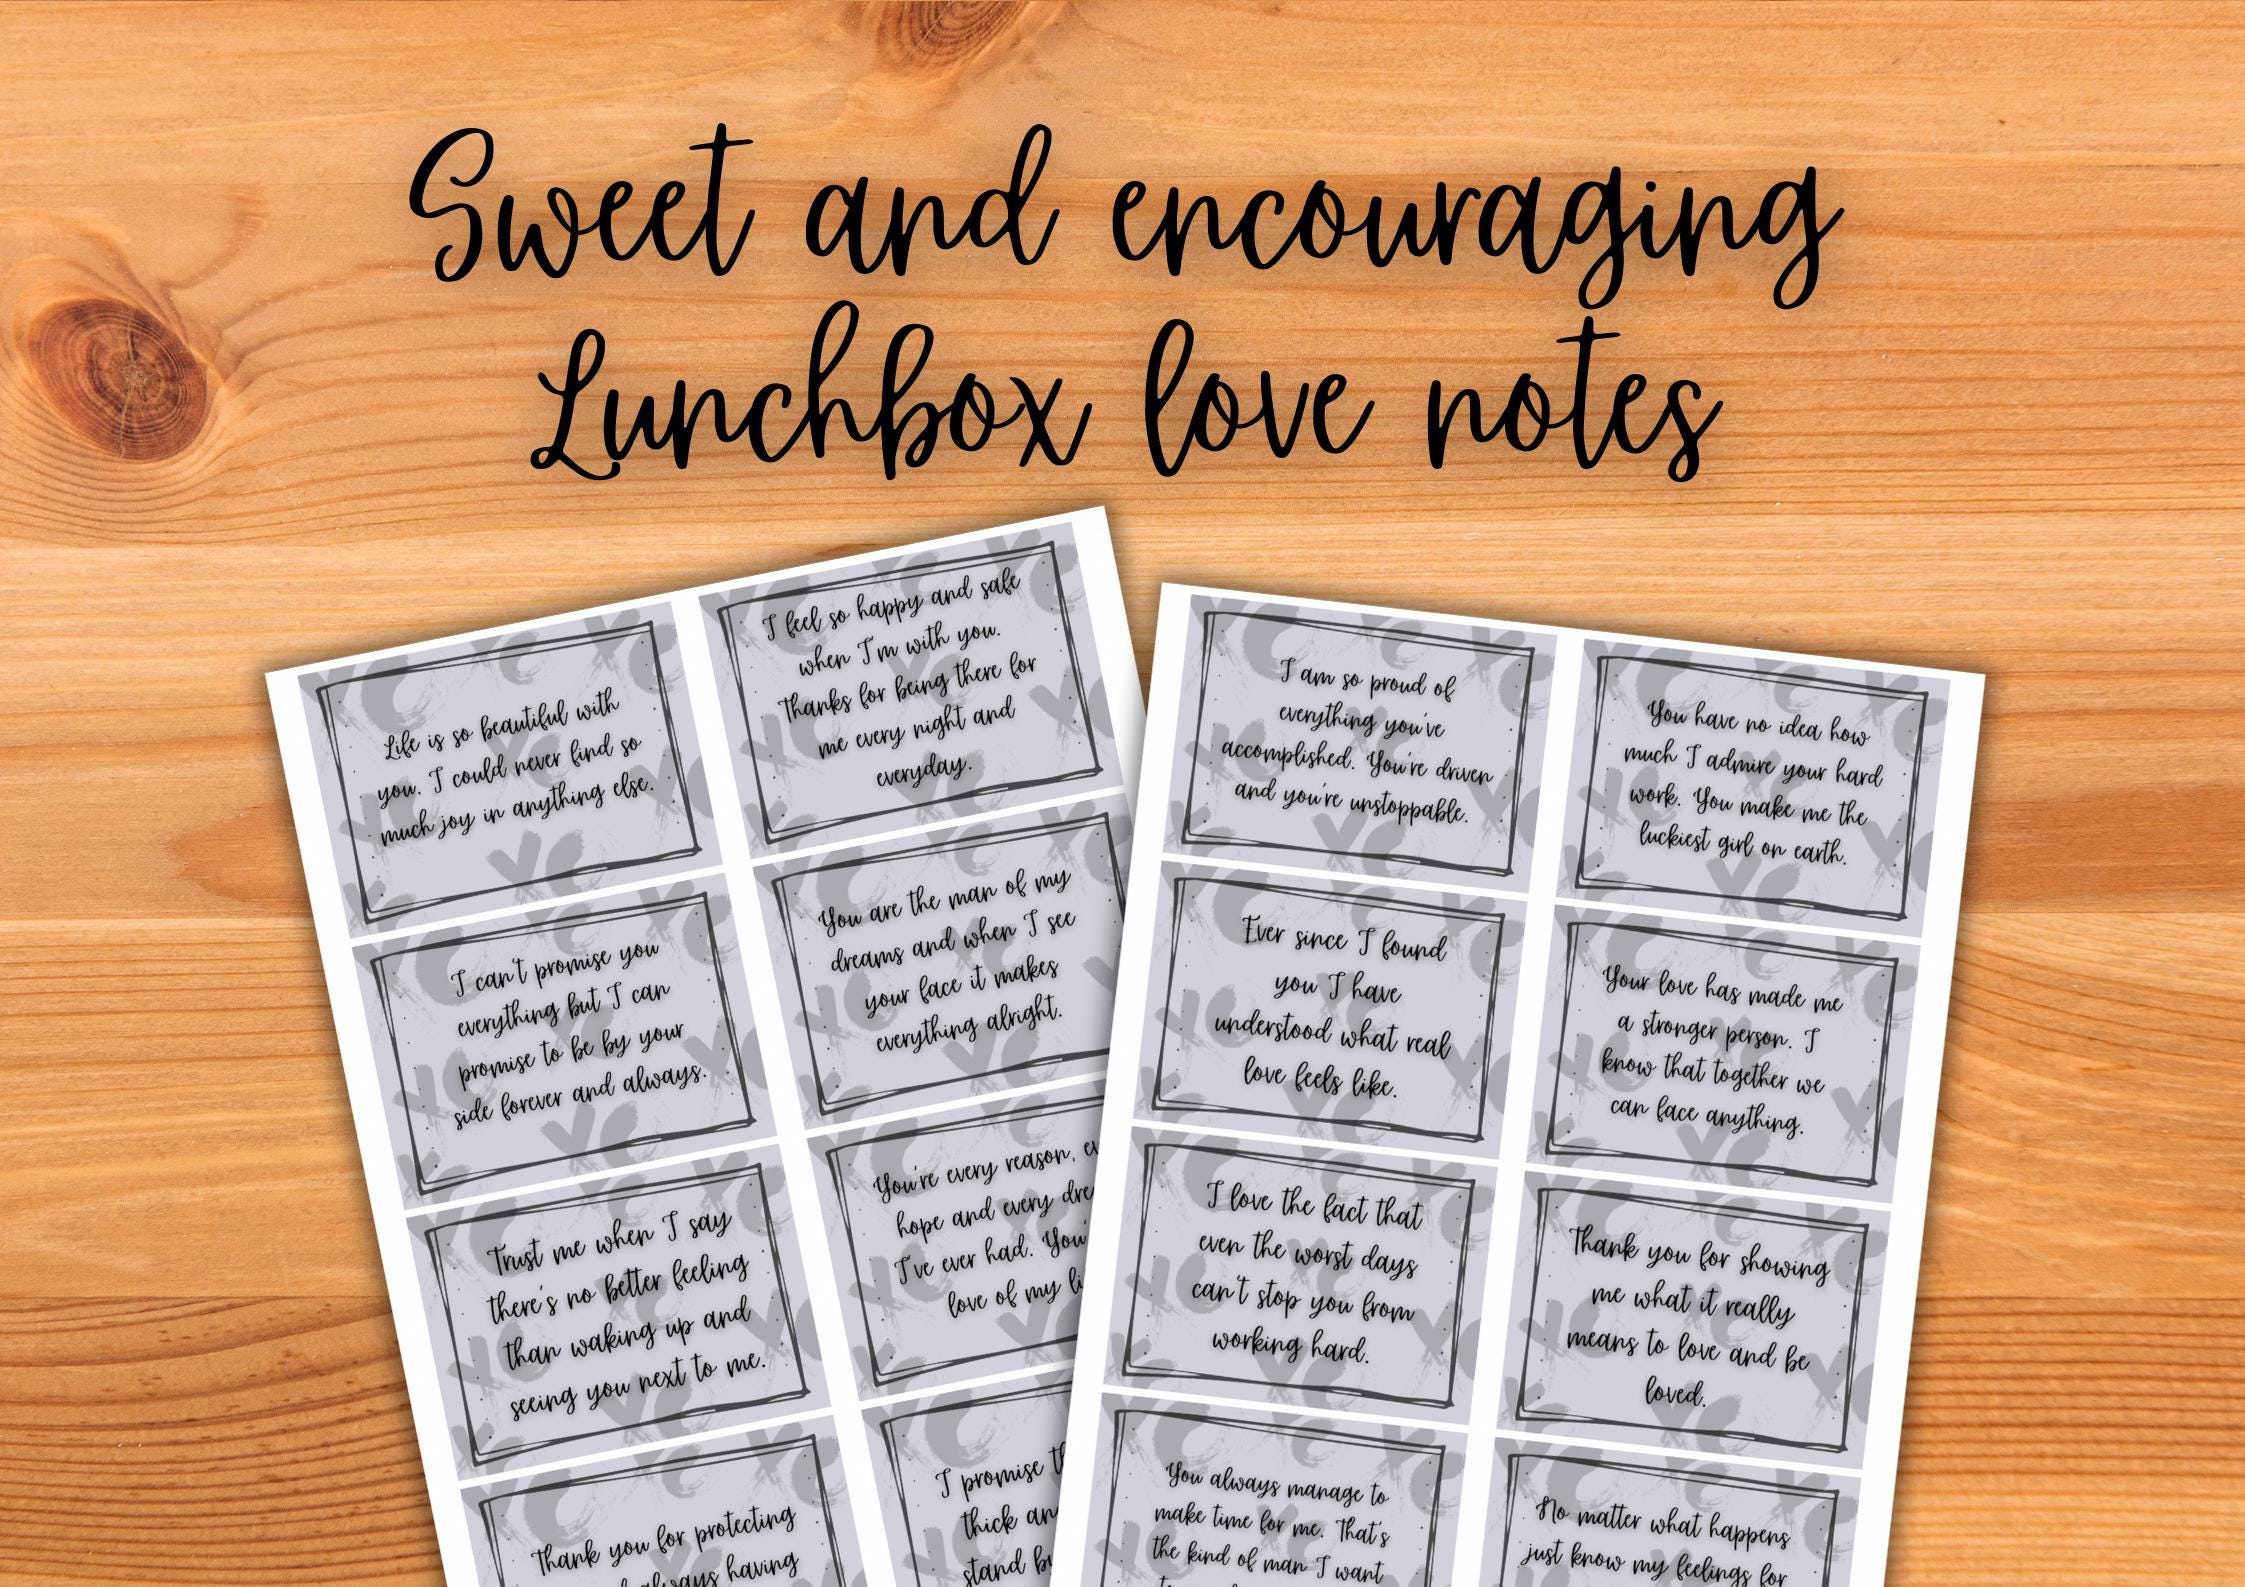 Sweet and encouraging
Lunchbox love notes
Life is so beautiful with
you. I could never find so
much joy in anything else.
I feel so happy and safe
when I'm with you.
Thanks for being there for
me every night and
everyday.
I can't promise you
everything but I can
promise to be by your
side forever and always.
You are the man of my
dreams and when I see
your face it makes
everything alright.
Trust me when I say
there's no better feeling
than waking up and
seeing you next to me.
You're every reason, ev
hope and every dre
I've ever had. You'
love of my li
Thank you for protecting
always having
I promise th
thick an
stand b
I am so proud of
everything you've
accomplished. You're driven
and you're unstoppable.
You have no idea how
much I admire your hard
work. You make me the
luckiest girl on earth.
Ever since I found
you I have
understood what real
love feels like.
Your love has made me
a stronger person. I
know that together we
can face anything.
I love the fact that
even the worst days
can't stop you from
working hard.
Thank you for showing
me what it really
means to love and be
loved.
You always manage to
make time for me. That's
the kind of man I want
No matter what happens
just know my feelings for